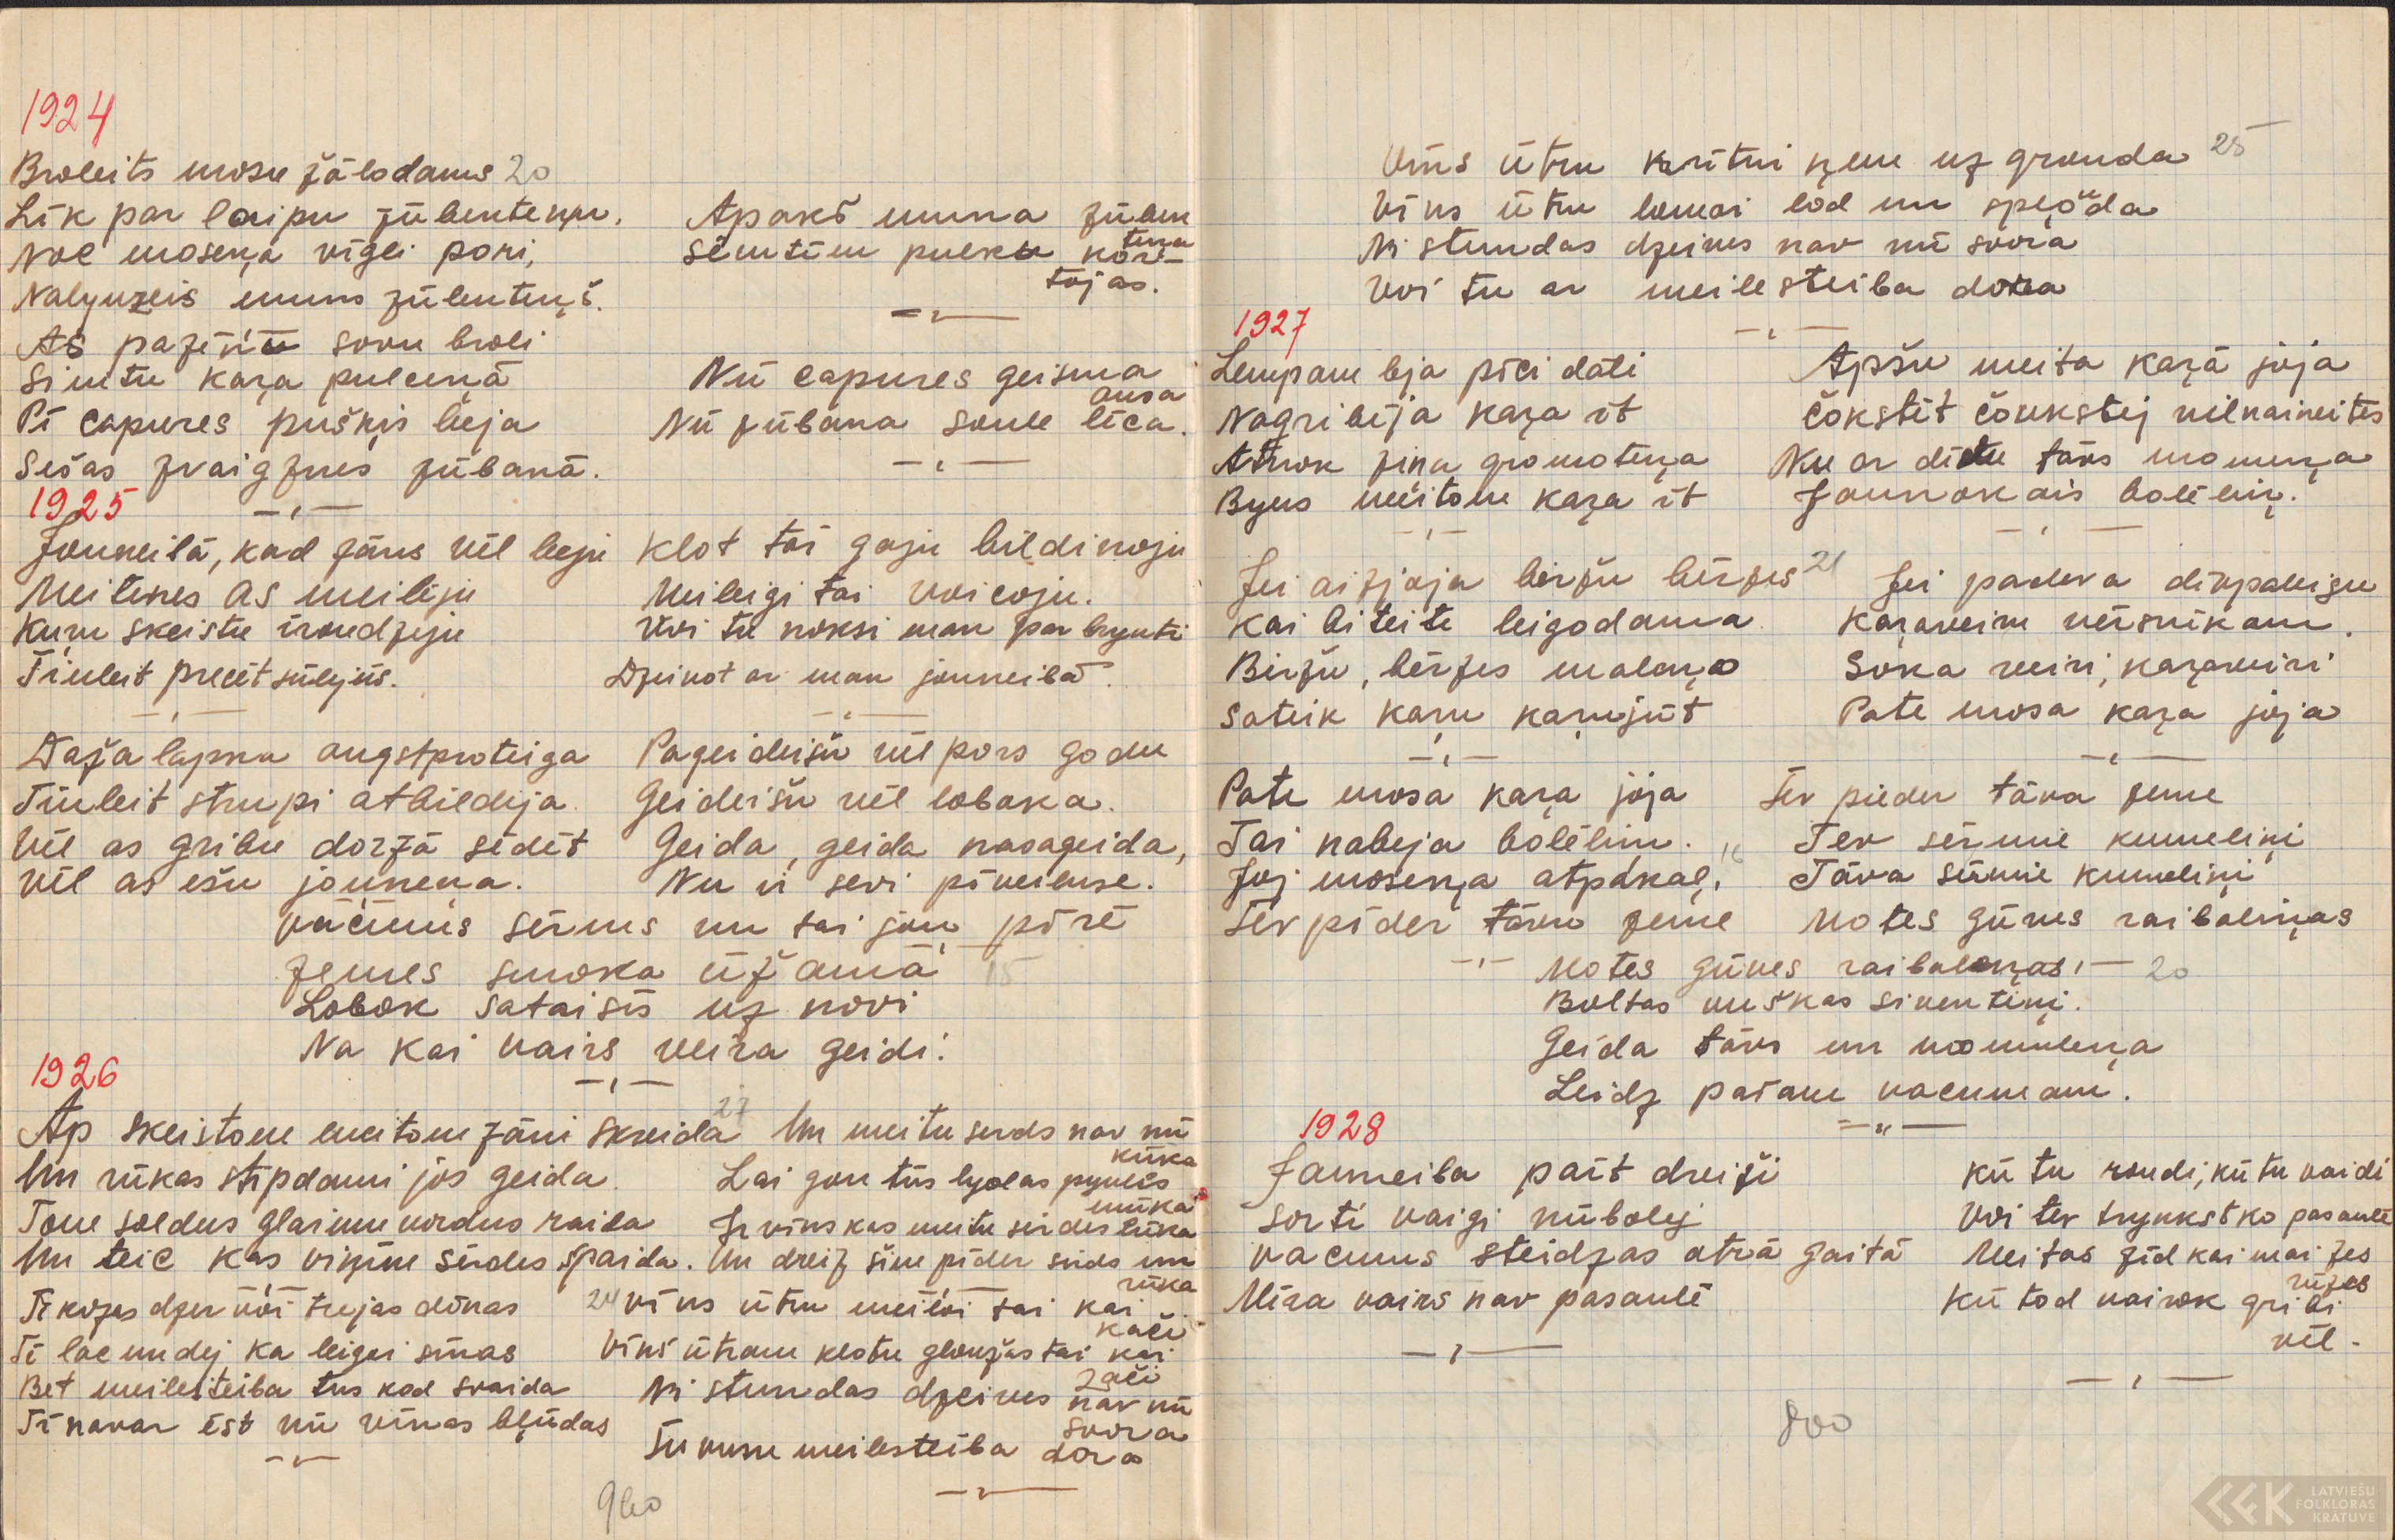 1924
Broleits mosu žālodams 20
Lik par laipu zūbentenu.
Noc moseņa vīgli pori,
Nalyuzeis muns zūbentenš.
As pazīnu sovu broli
Simtu kaŗa pulceņā
Pi capures puškis beja
Sešas zvaigznes zūbanā.
Apakš muna zūben
tena
Simtim pulku kōr-
tojas.
Nu capures geisma
ausa
Nu zūbana saule lēca.
1925
Jauneibā, kad zāns vēl beju
Meitenes as meileju
Kuŗu skeistu iraudzeju
Tiuleit precēt sūlejūs.
Klot tai goju bildinoju
Meileigi tai vaicoju.
Voi tu noksi man par bryuti
Dzeivot ar man jauneibā.
Daža lapna augstproteiga
Tiuleit strupi atbildeja.
Vēl as gribu dorzā sēdēt
Vēl as ešu jauneņa.
Pageideišu vēl pors godu
Geideišu vēl laboka.
Geida, geida nasageida,
Nu ii sevi pīmeluse.
Vacums sērms nu tai jau pōrē
Zemes smoka ūžamā 15
Lobok sataisīs uz novi
Na kai vairs veira geidi.
1926
Ap skeistom meitom zāni skreida 27
Un rūkas stipdami jōs geida.
Tōm soldus glaimu vordus raida
Un teic kas viņim sirdes spaida.
Ti kozas dzer voi trejas dīnas
Ti lac un dej ka leigoi sīnas
Bet meilesteiba tus kod svaida
Ti navar ēst nu vīnas bļūdas
Un meitu sirds nav nu
kūka
Lai gon tūs lyolas pyulēs
mūka
Ir vīns kas meitu sirdes lūka
Un dreiz šim pīder sirds un
rūka
24 vīns ūtru meiloi tai kai
kači
Vīns ūtram klotu glaužas tai kai
zači
Ni stundas dzeives nav nu
svora
Tu vusu meilesteiba dora
960
Vīns ūtru krūtni ņem uz grauda 25
Vīns ūtru lomoi lod un spļauda
Ni stundas dzeives nav nu svora
Voi tu ar meilesteiba dora
1927
Lempam bja pīci dāli
Nagribēja kaŗa īt
Atrok ziņu gromoteņa
Byus meitom kaŗa īt
Apšu meita kaŗā joja
čōkstēt čaukstej vilnaineites
Nu ar dīdu tāvs momeņa
Jaunokais bolēliņ.
Jei aizjoja bēržu bērzes 21
Kai biteite leigodama
Biržu, bērzes maleņo
Sateik kaŗu kaŗujūt
Jei padeva dīvpaleigu
Kaŗaveiru virsnīkam.
Soka veiri, kaŗaveiri
Pate mosa kaŗa joja
Pate mosa kaŗa joja
Tai nabeja bolēliņ. 16
Joj moseņa atpakaļ,
Tev pīder tāvu zeme
Tev pīeder tāva zeme
Tev sērmie kumeliņi
Tāva sērmie kumeliņi
Motes gūvis raibaliņas
Motes gūves raibaleņas, 20
Boltas vuškas siventiņi.
Geida tāvs un moomuleņa
Leidz pašam vacumam.
1928
Jauneiba pait dreiži
Sorti vaigi nūbolej
Vacums steidzas otrā gaitā
Mīra vairs nav pasaulē
Kū tu raudi, kū tu vaidi
Voi tev trynkst ko pasaulē
Meitas zīd kai maizes
rūzes
Kū tod vairok gribi
vēl.
800
LATVIEŠU
FOLKLORAS
KRĀTUVE